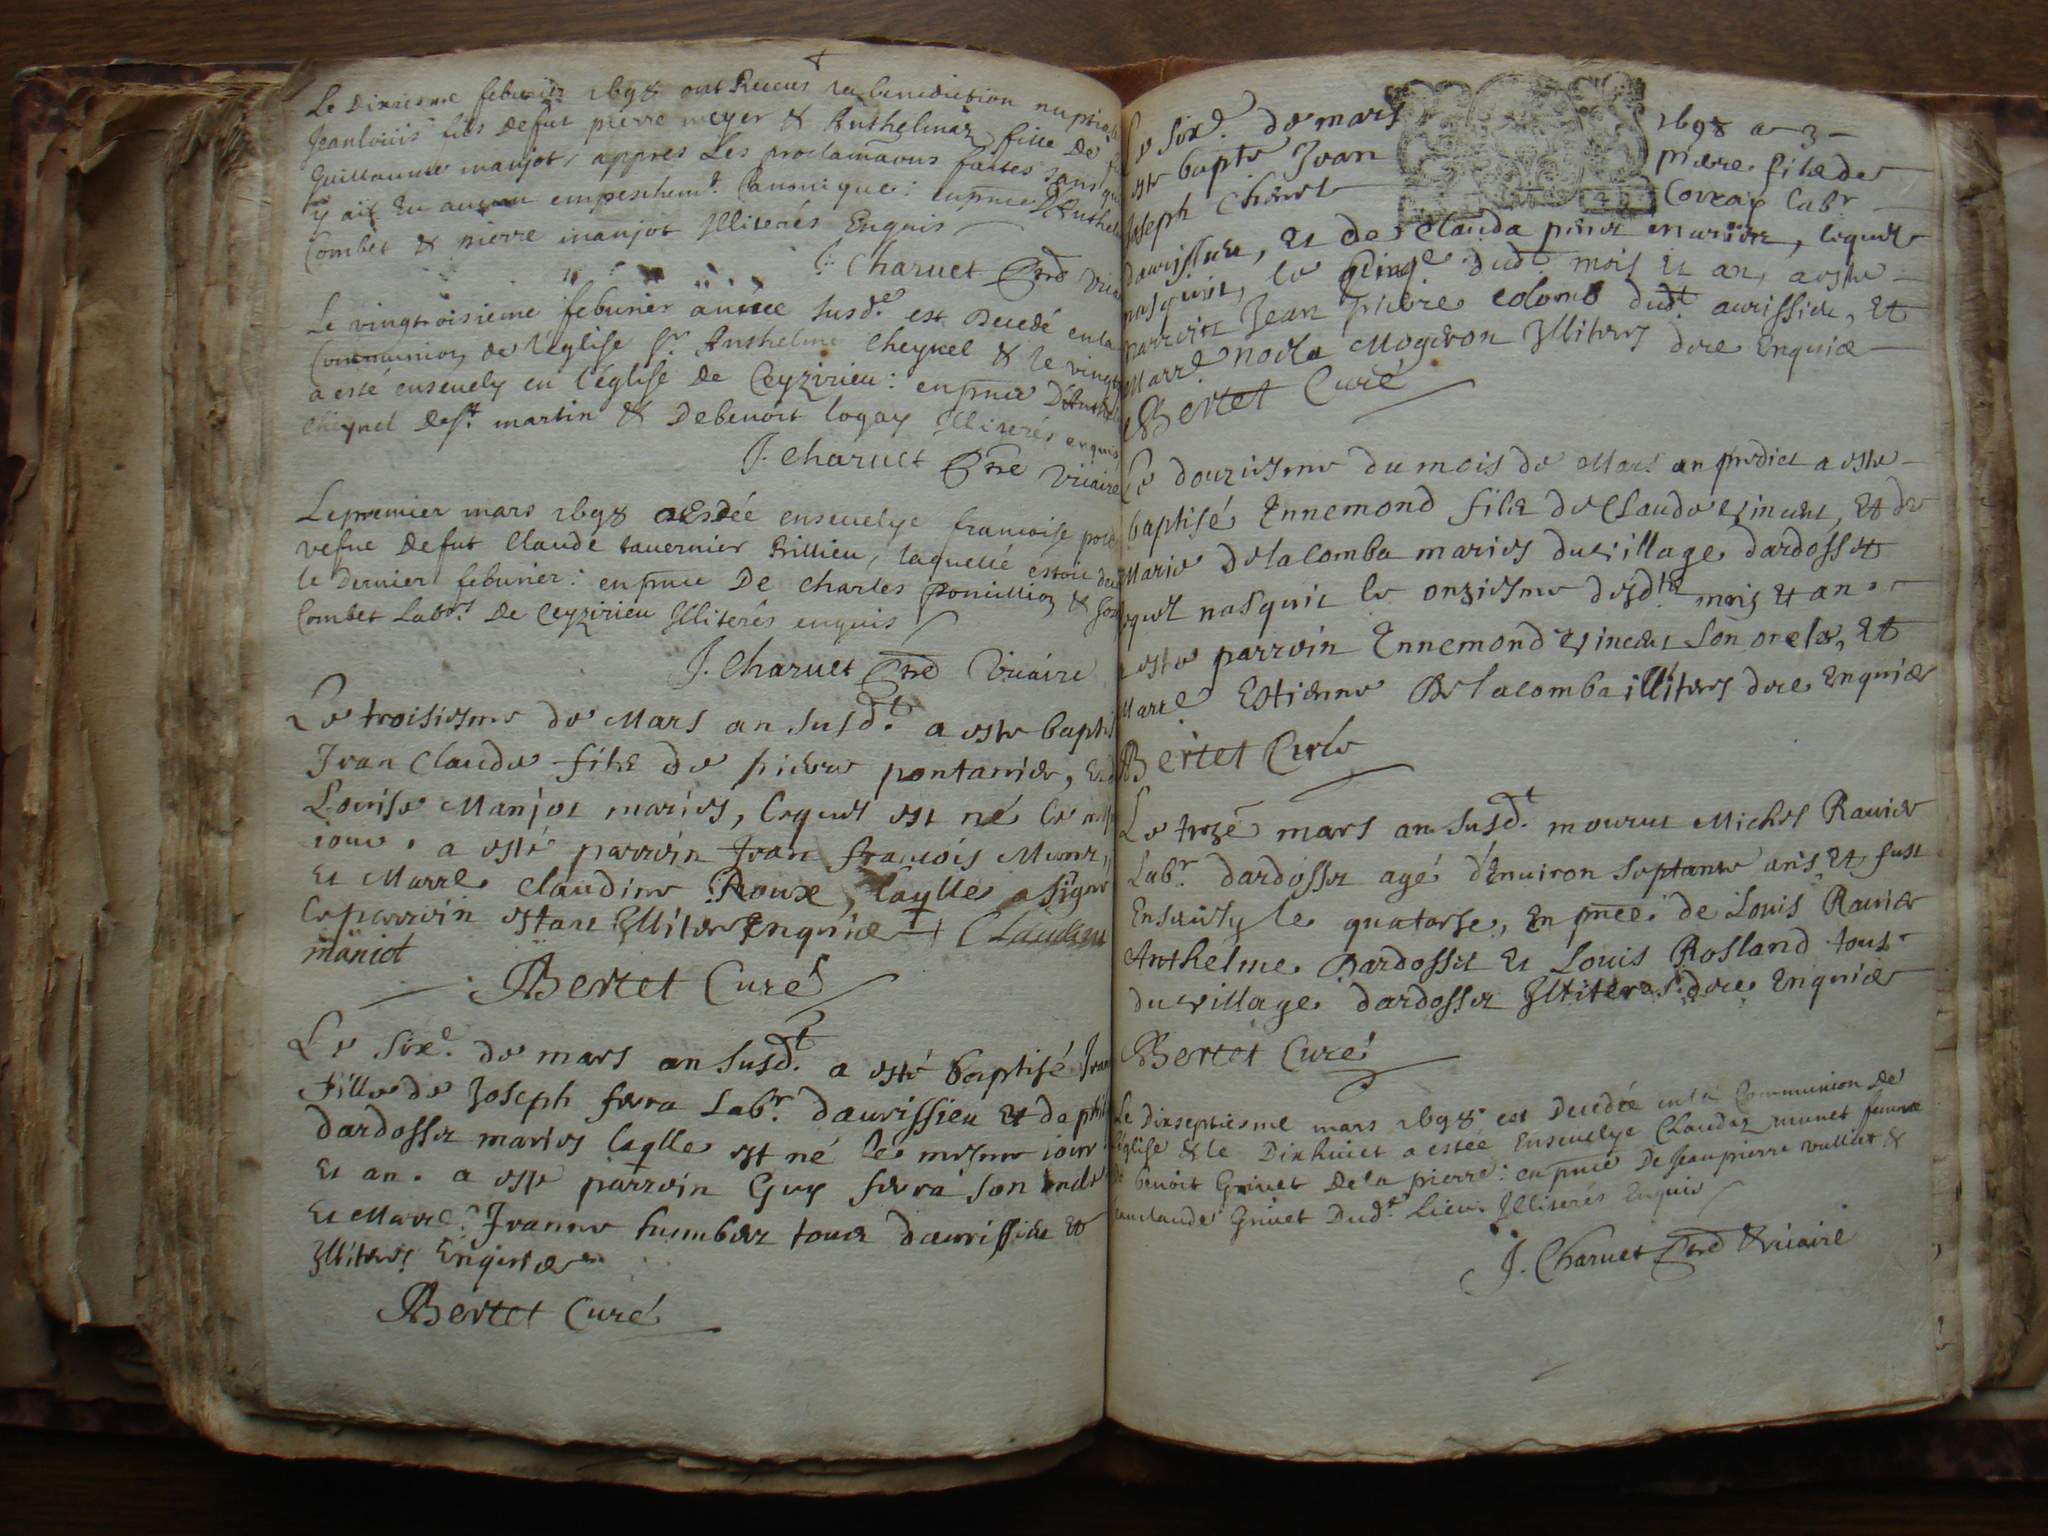 Le Dixiesme feburier 1698 ont Receus la benediction nuptiale
Jeanlouis fils Defut pierre meyer & Anthelmaz fille De
Guillaume manjot, appres Les proclamaōns faites sans que
y ait Eu aucun empeschemt. Canonique: en pnce D'Anthel
Combet & pierre manjot Illiterés Enquis
J. Charuet Ptre
Le vingtroisieme feburier année susde. est Decedé en la
Communion de l'eglise Sr Anthelme cheynel & le vingt
a esté enseuely en l'église de Ceyzirieu: en pnce D'Anth
cheynel De st. martin & De benoit logay Illiterés enquis
J. Charuet Ptre Vicaire
Le premier mars 1698 a Estée enseuelye francoise
vefue Defut Claude tauernier trillieu, laquelle estoit
le Dernier feburier: en pnce De charles ponillion &
Combet Labrs De Ceyzirieu Illiterés enquis
J. Charuet Ptre Vicaire
Le troisiesme de Mars an susdt. a este bapti
Jean Claude fils de pierre pontannier, Et d
Louise Manjot mariés, lequel est né le
iour. a esté parrein Jean françois
Et Marre. Claudine Roux, laqlle a signé
le parrein estant Illiteré Enquis Claudine
maniot
Bertet Curé
Le sixe. de mars an susdt. a esté baptisé
fille de Joseph ferra Labr. daurissieu Et de
dardosset mariés laqlle est né le mesme iour
Et an. a este parrein Guy ferra son oncle
Et Marre. Jeanne humbert tous daurissieu Et
Illiterés Enquis
Bertet Curé
Le sixe. de mars 1698 a
este bapte Jean pierre fils de
Joseph Labr
daurissieu, Et de Clauda mariés, lequel
nasquit, le cinqe dudt mois Et an, a este
parrein Jean pierre colomb dudt. aurissieu, Et
Marre. Illiterés de ce Enquis
Bertet Curé
Le douziesme du mois de Mars an predict a este
baptisé Ennemond fils de Claude vincent, Et de
Marie delacomba mariés du village dardosset
lequel nasquit le onziesme desdts mois Et an.
a este parrein Ennemond vincent son oncle, Et
Marre. Estienne Delacomba illiterés de ce Enquis
Bertet Curé
Le treze mars an susdt. mourut Michel Rauier
Labr. dardosset agé d'Enuiron septante ans, Et fust
Enseuely le quatorse, En pnce. de Louis Rauier
Anthelme Dardosset Et Louis Rosland tous
du village dardosset Illiterés de ce Enquis
Bertet Curé
Le Dixseptiesme mars 1698 est Decedée en la Communion de
l'eglise & le Dixhuict a estée Enseuelye Claudaz munet femme
De benoit Griuet De la pierre: en pnce De Jeanpierre vulliet &
Jeanclaude Griuet Dudt. Lieu Illiterés Enquis
J. Charuet Ptre & vicaire